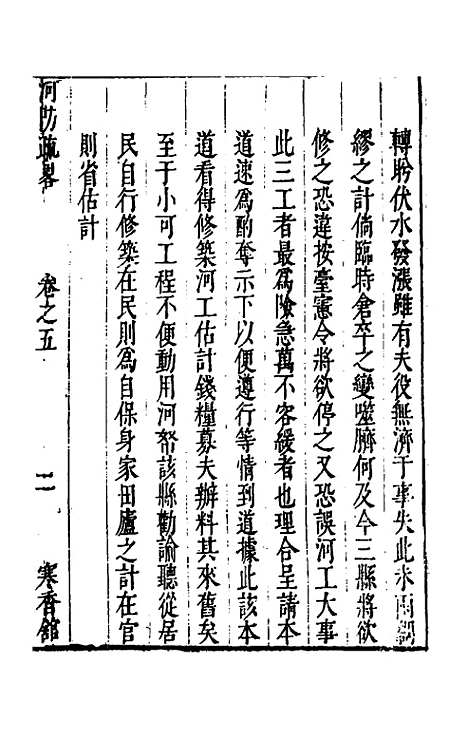 轉盻伏水發漲雖有夫役無濟于事失此未雨綢
繆之計倘臨時倉卒之變噬臍何及今三縣將欲
修之恐違按臺憲令將欲停之又恐誤河工大事
此三工者最爲險急萬不容緩者也理合呈請本
道速爲酌奪示下以便遵行等情到道據此該本
道看得修築河工估計錢糧募夫辦料其來舊矣
至于小可工程不便動用河帑該縣勸諭聽從居
民自行修築在民則爲自保身家田廬之計在官
則省估計
河防疏畧
卷之五
二
寒香館